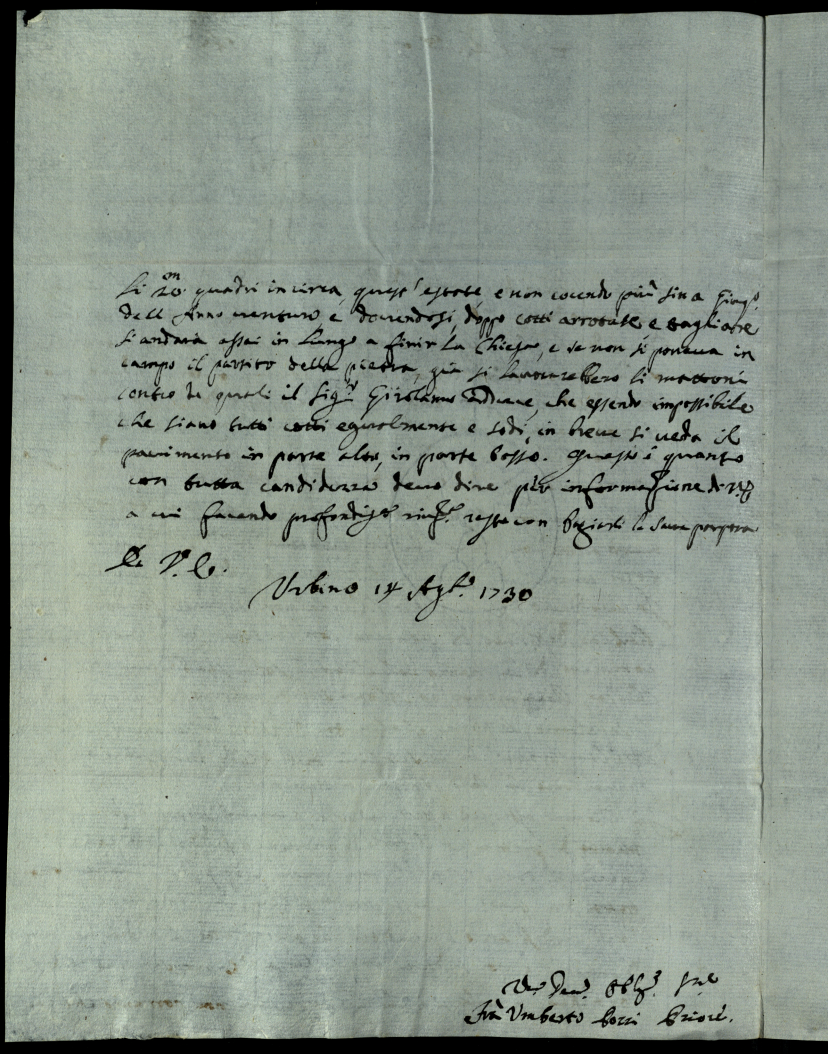 li 20m quadri in circa, quest'estate, e non cocendo più sin a Giug.o
dell'Anno venturo e dovendosi, doppo cotti arrotare e tagliare
si andarà assai in lungo a finir la Chiesa, e se non si poneva in
campo il partito della pietra, già si lavorarebbero li mattoni
contro de quali il Sig.r Girolamo adduce, che essendo impossibile
che siano tutti cotti egualmente e sodi, in breve si veda il
pavimento in parte alto, in parte basso. Questo è quanto
con tutta candidezza devo dire per informazione di V.E.
a cui facendo profondiss.a river.a resto con bagiarli la Sacra porpora
Di V.E.
Urbino 14 Ag.to 1730
Um. Dev. Obl.
Fra Umberto Bozzi Priore.